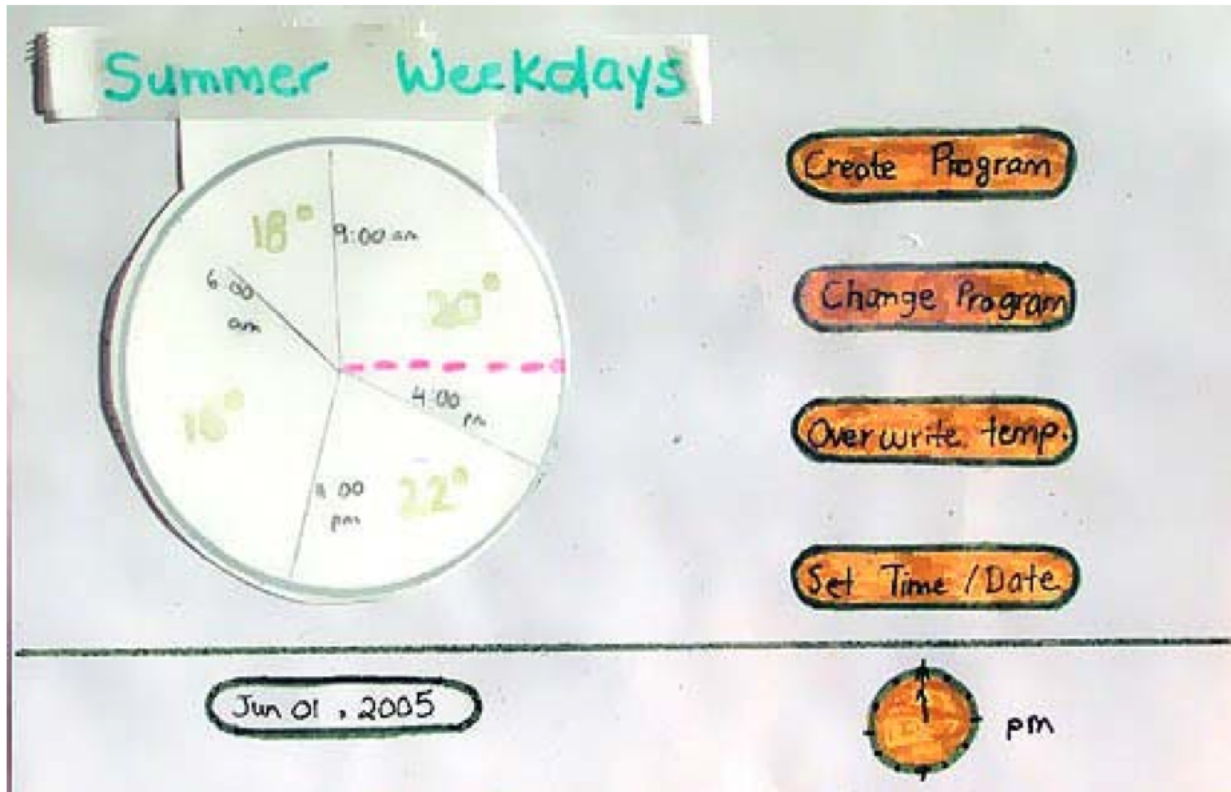 Summer Weekdays
18°
9:00 am
6:00
am
20°
4:00
pm
16°
00
pm
22°
Create Program
Change Program
Overwrite temp.
Set Time / Date
Jun 01, 2005
pm